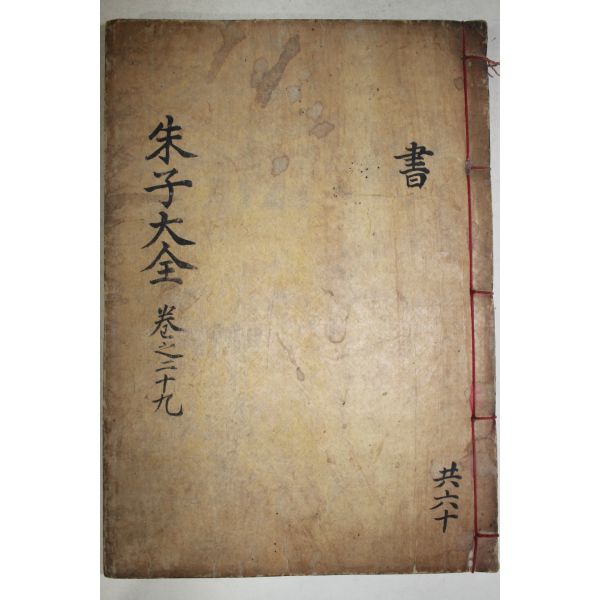 書
共六十
朱子大全
卷之二十九